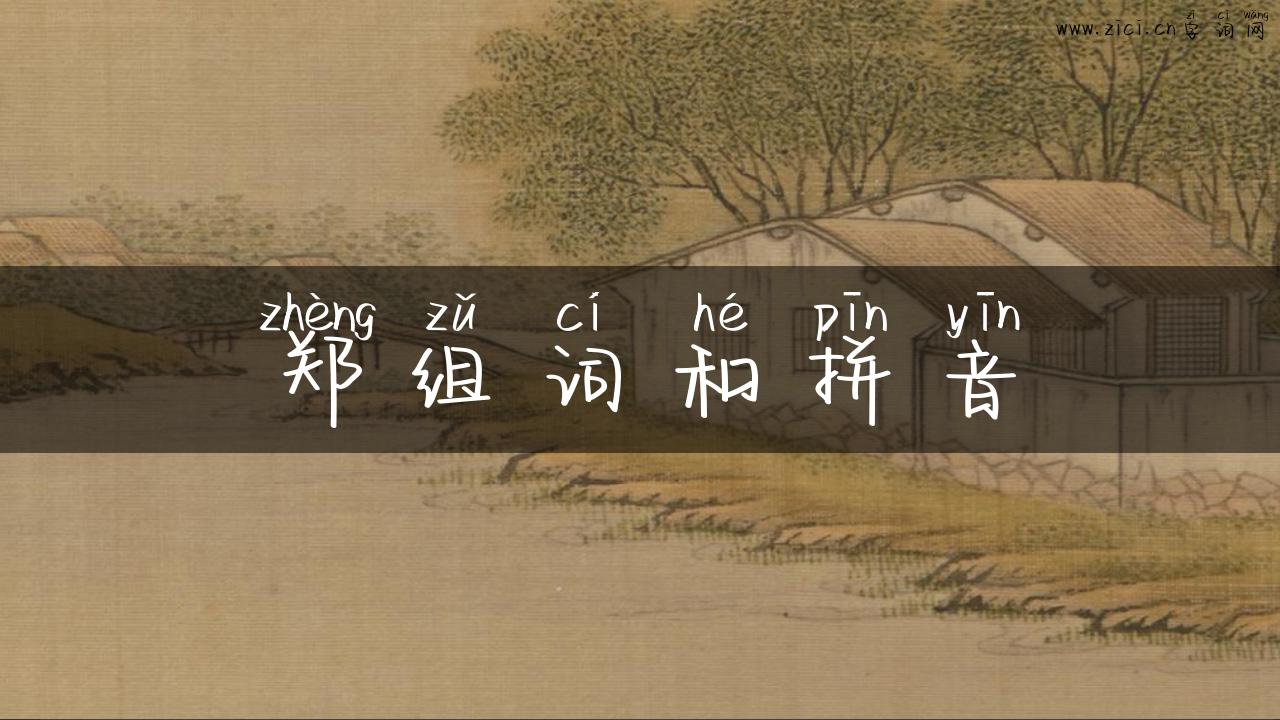 zì cí wǎng
www.zici.cn字词网
zhèng zǔ cí hé pīn yīn
郑组词和拼音